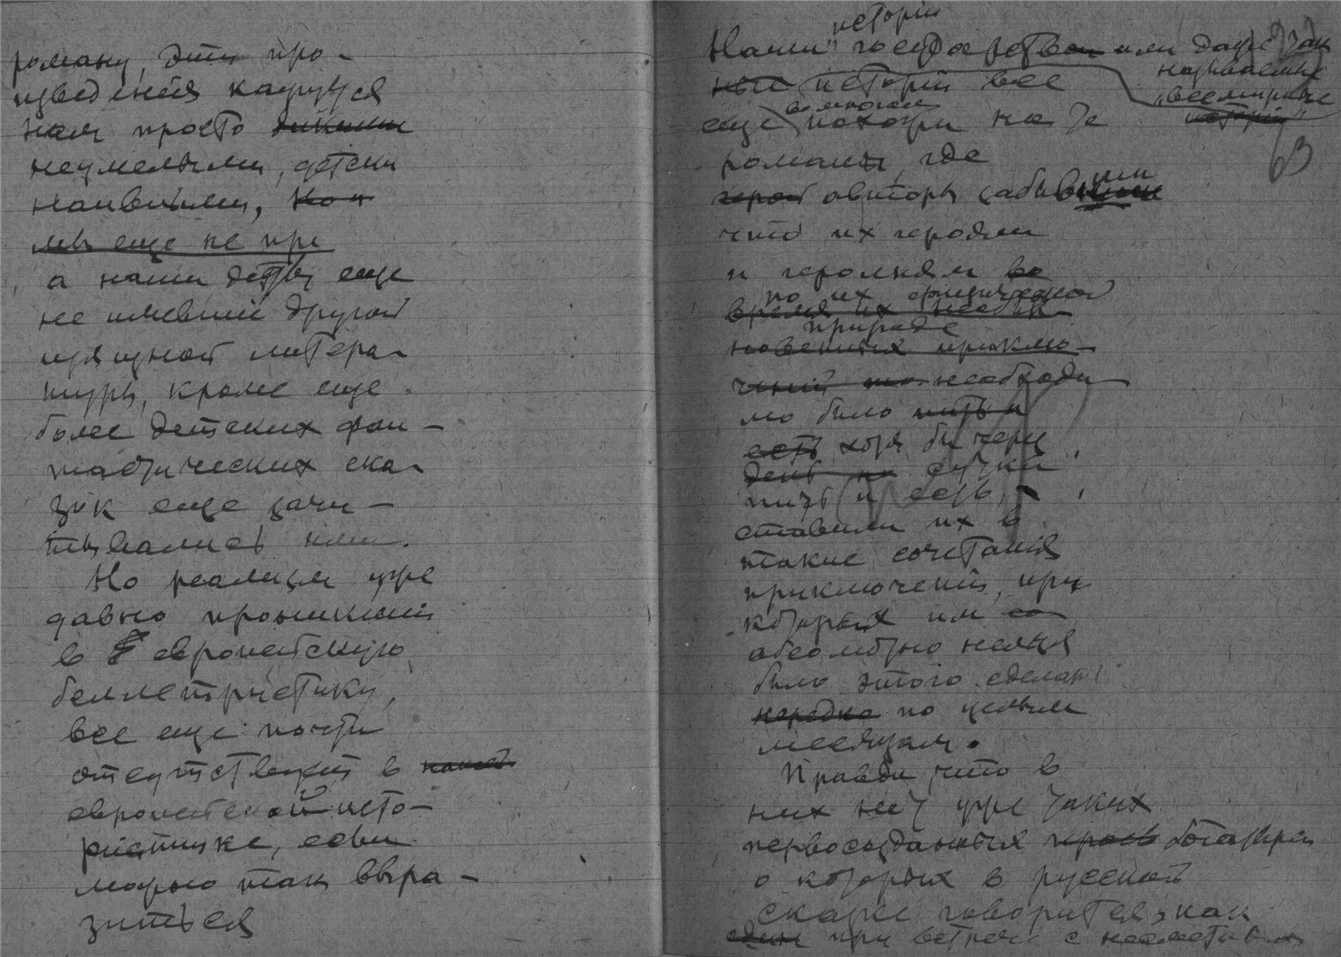 роману, эти про-
изведения кажутся
нам просто дикими
неумелыми, детски
наивными, но и
мы еще не при
а наши деды еще
не имевший другой
изящной литера-
туры, кроме еще
более детских фан-
тастических ска-
зок еще зачи-
тывались ими.
Но реализм уже
давно проникший
в европейскую
беллетристику,
все еще почти
отсутствует в нашей
европейской исто-
ристике, если
можно так выра-
зиться
истории
Наши государствен или даже так
ные истории все
называемые
"всемирные
истории"
во многом
еще похожи на те
63
романы, где
герой авторы забывши
что их героям
и героиням во
по их физической
время их необык
природе
новенных приклю-
чений то необходи
мо было пить и
есть хотя бы через
день не сутки
пить и есть,
ставили их в
такие сочетания
приключений, при
которых им
абсолютно нельзя
было этого сделать
нередко по целым
месяцам.
Правда, что в
них нет уже таких
первосозданных богатырей
о которых в русской
сказке говорится, как
один при встрече с